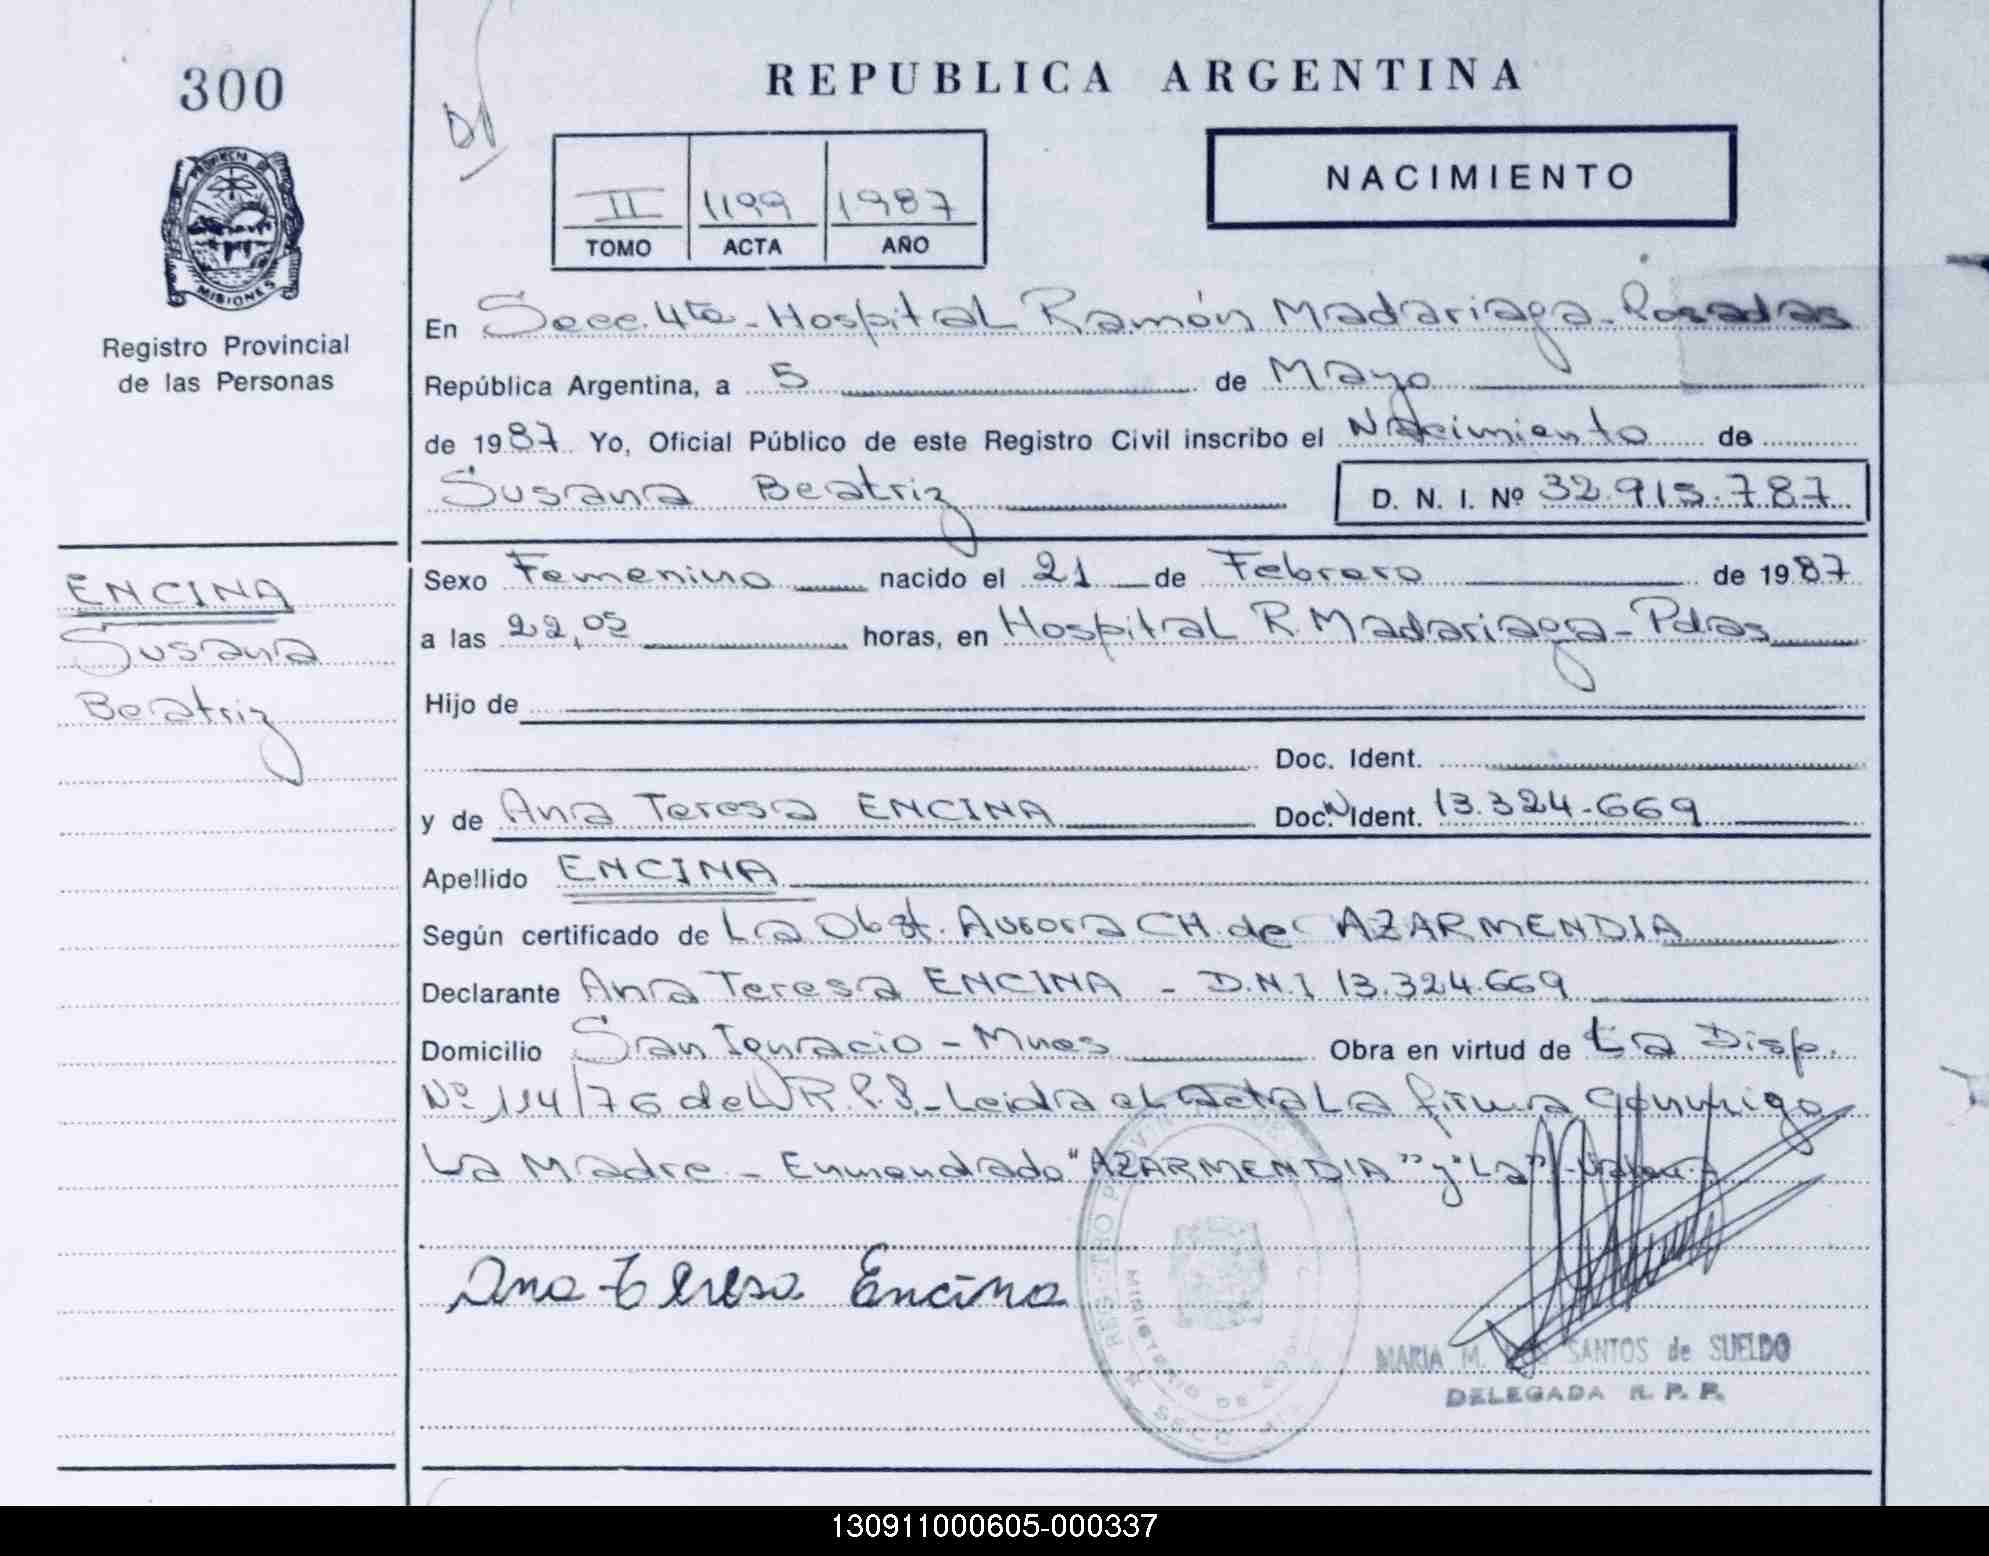 300
REPUBLICA ARGENTINA
D1
NACIMIENTO
II 1199 1987
TOMO ACTA AÑO
PROVINCIA DE
MISIONES
Registro Provincial
de las Personas
En Secc. 4ta - Hospital Ramón Madariaga - Posadas
República Argentina, a 5 de Mayo
de 1987 Yo, Oficial Público de este Registro Civil inscribo el Nacimiento de
Susana Beatriz D. N. I. Nº 32.915.787
ENCINA
Susana
Beatriz
Sexo Femenino nacido el 21 de Febrero de 1987
a las 22,05 horas, en Hospital R. Madariaga - Pdas
Hijo de
Doc. Ident.
y de Ana Teresa ENCINA Doc. N Ident. 13.324.669
Apellido ENCINA
Según certificado de La Obst. Aurora CH. de AZARMENDIA
Declarante Ana Teresa ENCINA - D.N.I 13.324.669
Domicilio San Ignacio - Mnes Obra en virtud de La Disp.
Nº 114/76 del R.P.P. - Leida el acta La firma conmigo
La Madre - Enmendado "AZARMENDIA" y "La" - Valen.
Ana Teresa Encina
MARIA M. SANTOS de SUELDO
DELEGADA R. P. P.
130911000605-000337